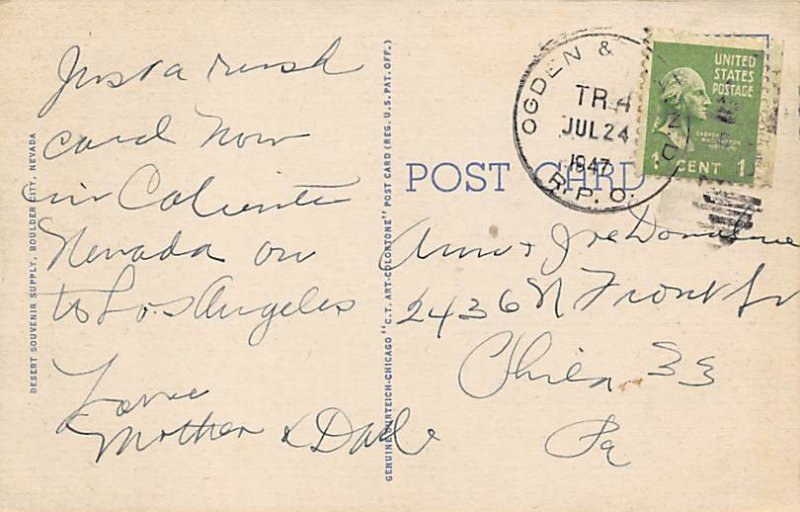 Just a rush
card now
in Caliente
Nevada on
to Los Angeles
Love
Mother & Dad
DESERT SOUVENIR SUPPLY, BOULDER CITY, NEVADA
GENUINE CURTEICH-CHICAGO "C.T. ART-COLORTONE" POST CARD (REG. U.S. PAT. OFF.)
OGDEN &
TR.4
JUL 24
1947
R.P.O.
UNITED
STATES
POSTAGE
1 CENT 1
POST CARD
Ann & Joe Donahue
2436 N Front St
Phila 33
Pa